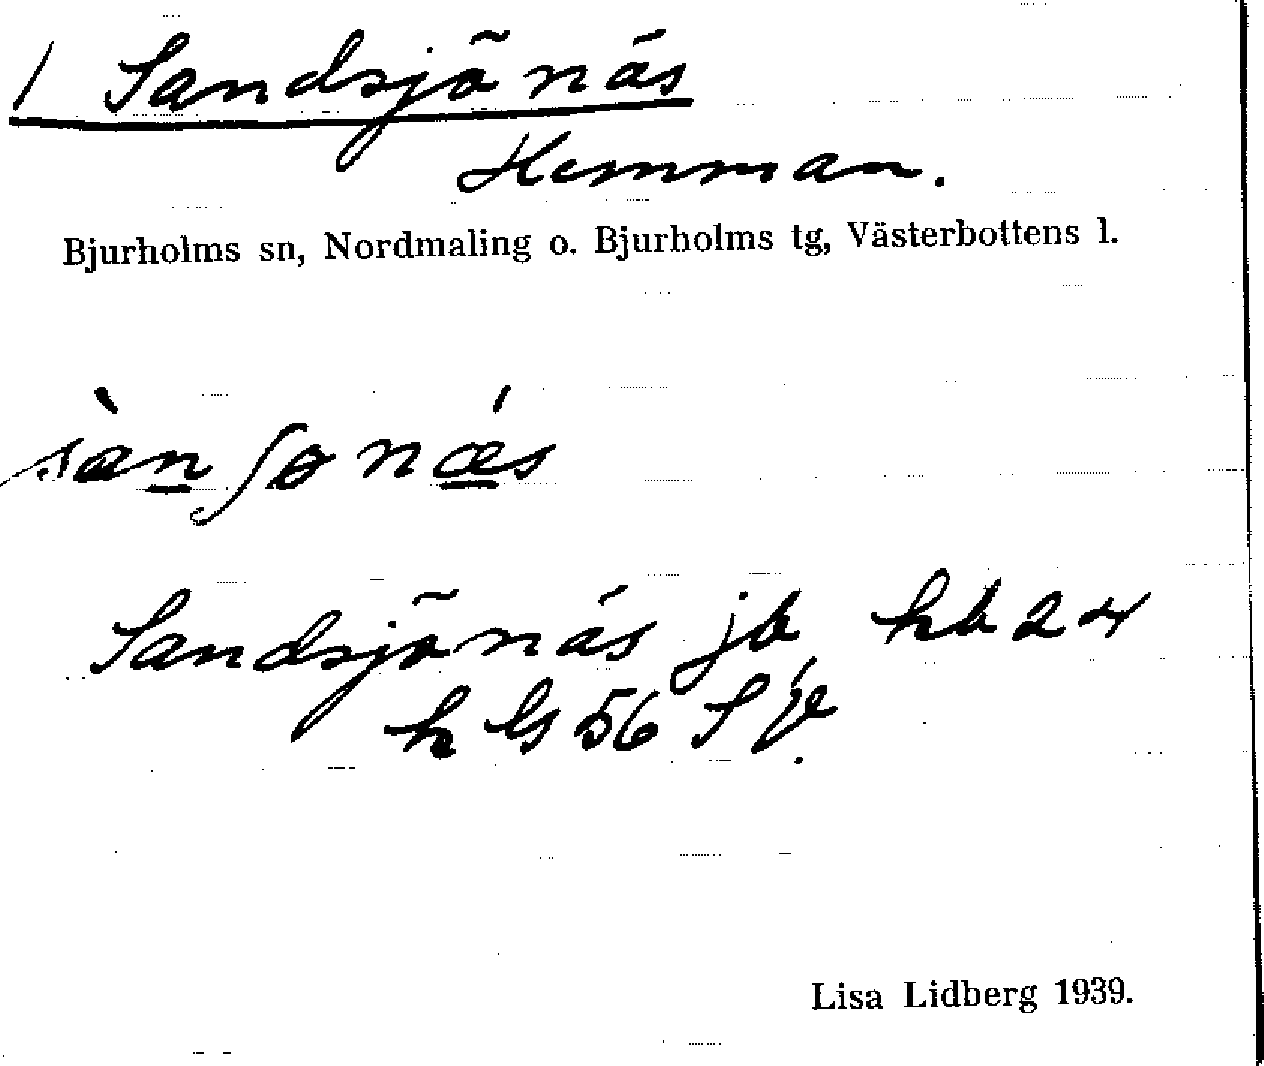 1 Sandsjönäs
Hemman.
Bjurholms sn, Nordmaling o. Bjurholms tg, Västerbottens l.
Sandsjönäs jb hb 24
h bl 56 SV.
Lisa Lidberg 1939.